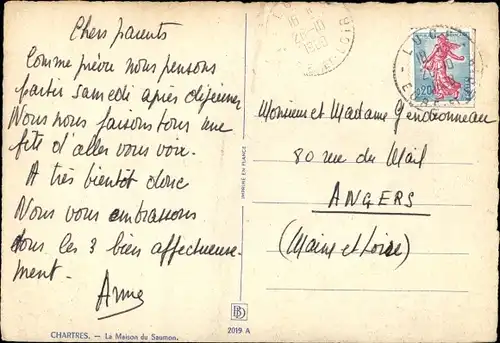 Chers parents
Comme prévu nous pensons
partir samedi après déjeuner
Nous nous faisons tous une
fête d'aller vous voir.
A très bientôt donc
Nous vous embrassons
tous les 3 bien affectueuse-
ment.
Anne
CHARTRES. — La Maison du Saumon.
IMPRIMÉ EN FRANCE
BD
2019 A
18 H
28-10
EURE-ET-LOIR
0,20
Monsieur et Madame Gendronneau
80 rue du Mail
ANGERS
(Maine et Loire)